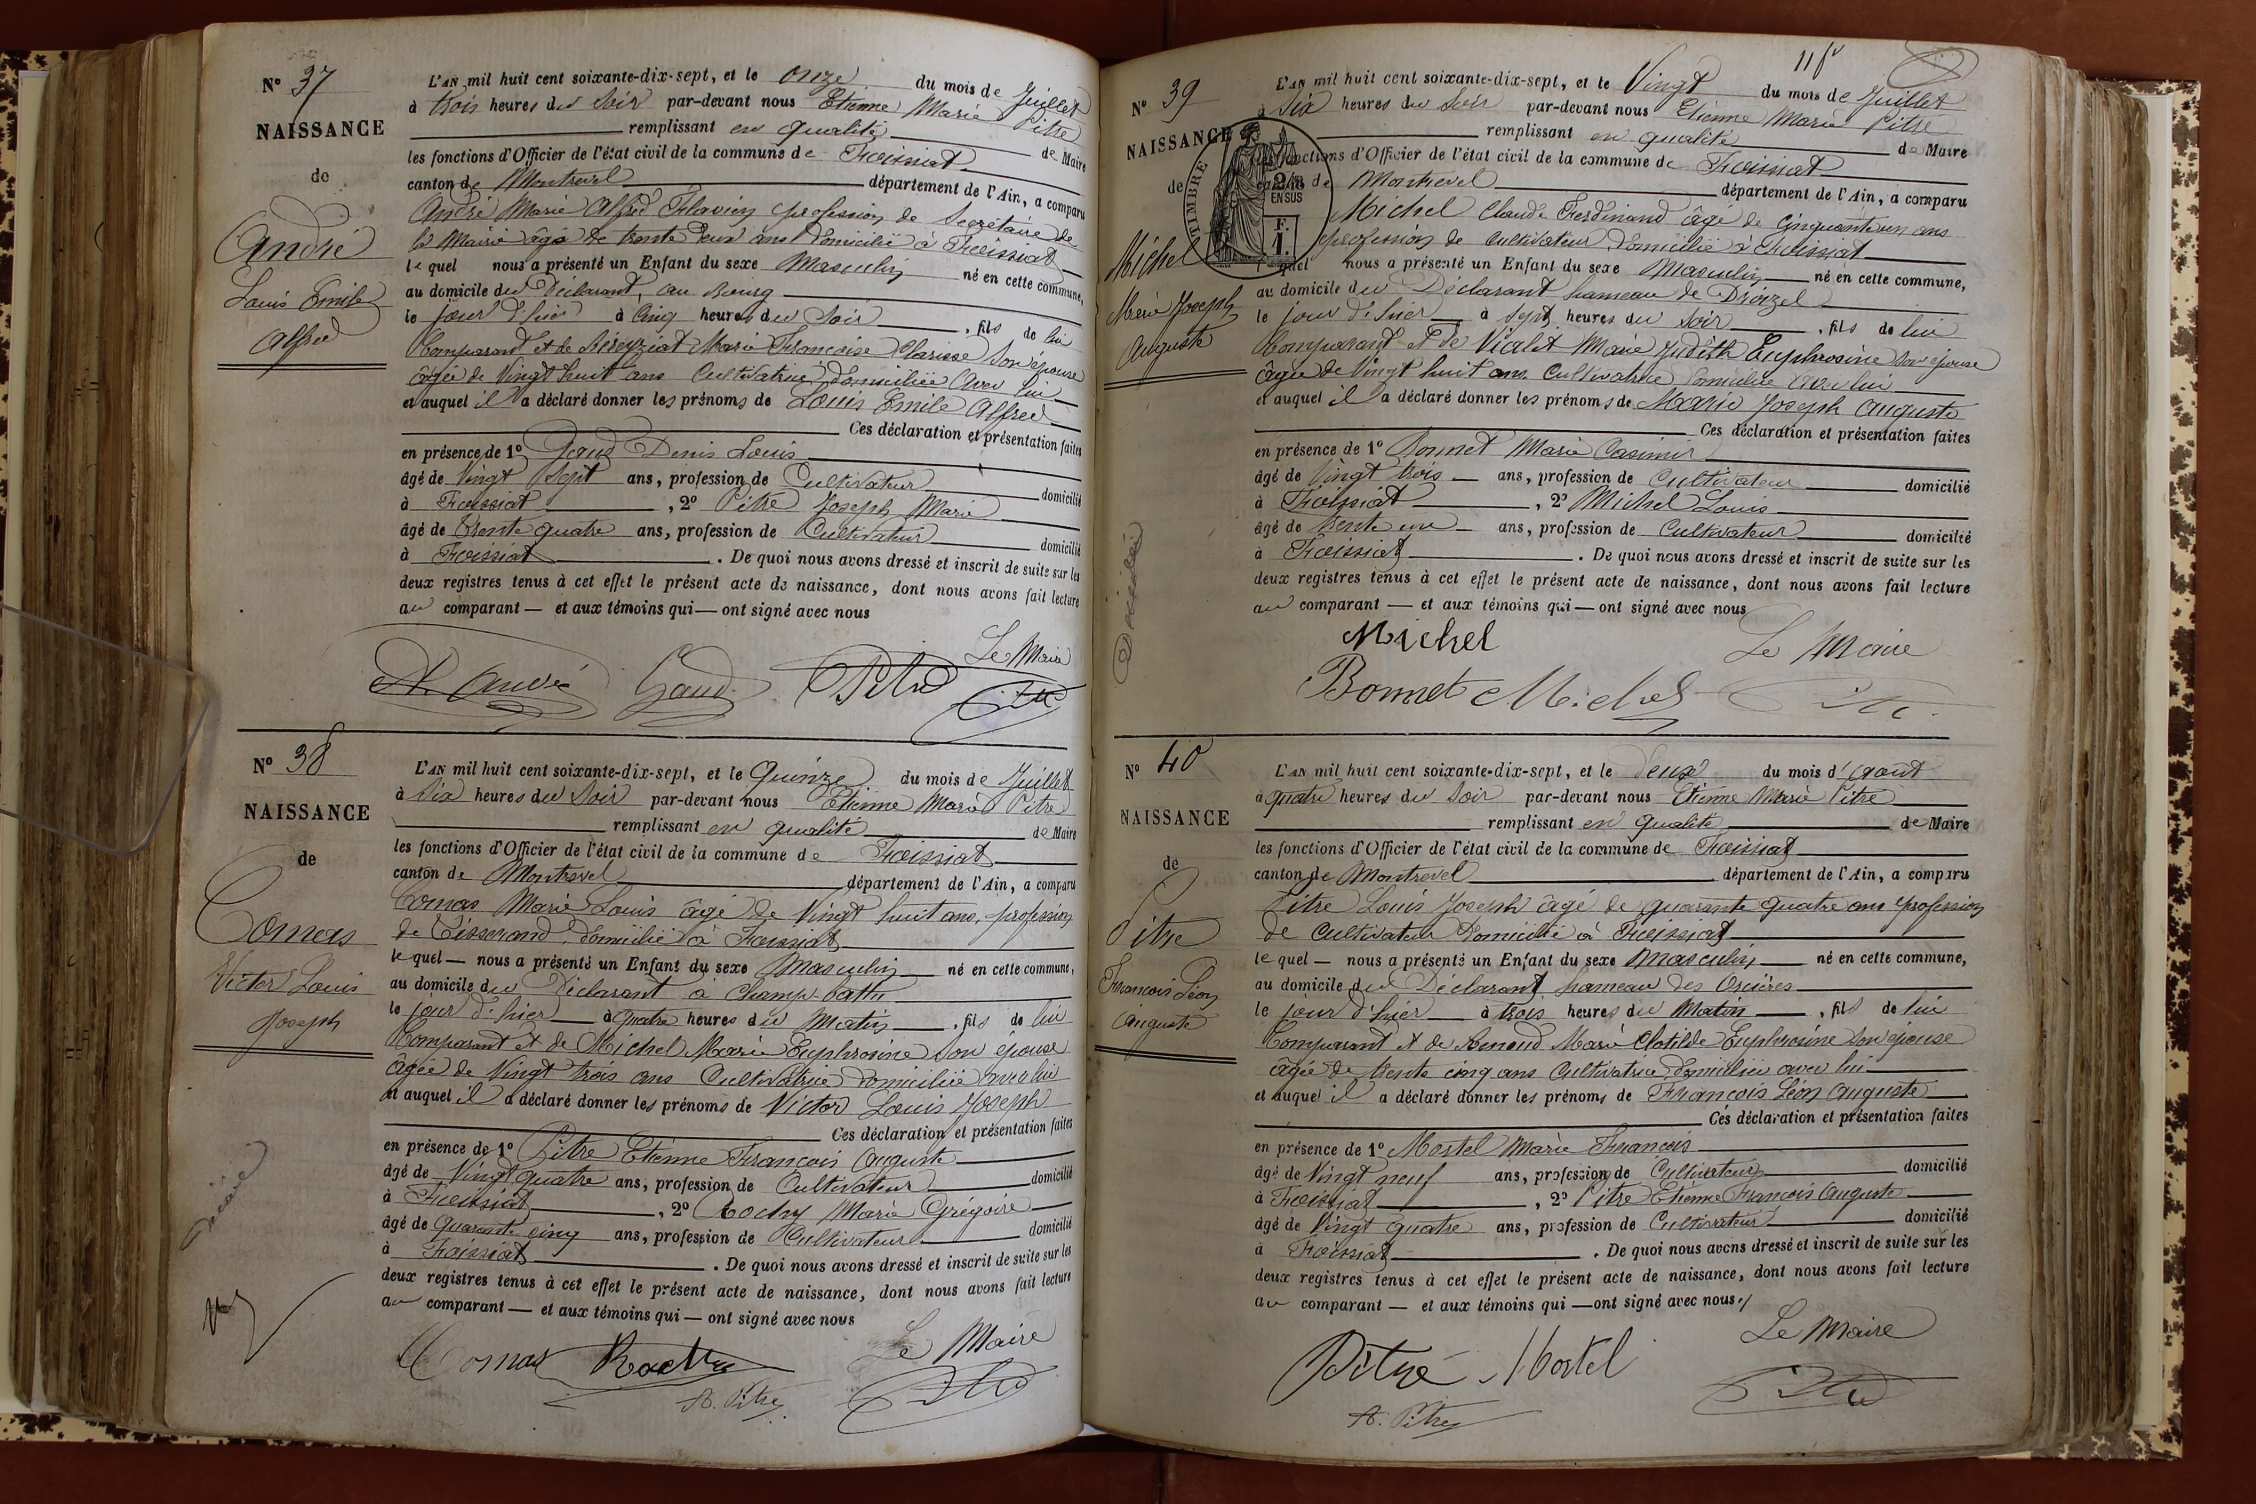 N° 37
NAISSANCE
de
André
Louis Emile
Alfred
L'AN mil huit cent soixante-dix-sept, et le onze du mois de Juillet
à trois heures du Soir par-devant nous Etienne Marie Pitre
remplissant en qualité de Maire
les fonctions d'Officier de l'état civil de la commune de Foissiat
canton de Montrevel département de l'Ain, a comparu
André Marie Alfred Flavien profession de Secrétaire de
la Mairie âgé de trente deux ans domicilié à Foissiat
le quel nous a présenté un Enfant du sexe Masculin né en cette commune,
au domicile du Déclarant, au Bourg
le jour d'hier à Cinq heures du Soir, fils de lui
Comparant et de Marie Françoise Clarisse Son épouse
âgée de Vingt huit ans Cultivatrice domiciliée avec lui
et auquel il a déclaré donner les prénoms de Louis Emile Alfred
Ces déclaration et présentation faites
en présence de 1° Gaud Denis Louis
âgé de Vingt Sept ans, profession de Cultivateur domicilié
à Foissiat, 2° Pitre Joseph Marie
âgé de Trente quatre ans, profession de Cultivateur domicilié
à Foissiat. De quoi nous avons dressé et inscrit de suite sur les
deux registres tenus à cet effet le présent acte de naissance, dont nous avons fait lecture
au comparant — et aux témoins qui — ont signé avec nous
Le Maire
A. André Gaud Pitre Pitre
N° 38
NAISSANCE
de
Comas
Victor Louis
Joseph
L'AN mil huit cent soixante-dix-sept, et le Quinze du mois de Juillet
à Six heures du Soir par-devant nous Etienne Marie Pitre
remplissant en qualité de Maire
les fonctions d'Officier de l'état civil de la commune de Foissiat
canton de Montrevel département de l'Ain, a comparu
Comas Marie Louis âgé de Vingt huit ans, profession
de Tisserand domicilié à Foissiat
le quel — nous a présenté un Enfant du sexe Masculin né en cette commune,
au domicile du Déclarant à Champ
le jour d'hier à quatre heures du Matin, fils de lui
Comparant et de Michel Marie Euphrosine Son épouse
âgée de Vingt trois ans Cultivatrice domiciliée avec lui
et auquel il a déclaré donner les prénoms de Victor Louis Joseph
Ces déclaration et présentation faites
en présence de 1° Pitre Etienne François Auguste
âgé de Vingt quatre ans, profession de Cultivateur domicilié
à Foissiat, 2° Rochy Marie Grégoire
âgé de Quarante cinq ans, profession de Cultivateur domicilié
à Foissiat. De quoi nous avons dressé et inscrit de suite sur les
deux registres tenus à cet effet le présent acte de naissance, dont nous avons fait lecture
au comparant — et aux témoins qui — ont signé avec nous
Le Maire
Comas Rochy
A. Pitre Pitre
N° 39
NAISSANCE
de
Michel
Marie Joseph
Auguste
TIMBRE
2/10
EN SUS
F.
1.
L'AN mil huit cent soixante-dix-sept, et le Vingt du mois de Juillet
à Six heures du Soir par-devant nous Etienne Marie Pitre
remplissant en qualité de Maire
les fonctions d'Officier de l'état civil de la commune de Foissiat
canton de Montrevel département de l'Ain, a comparu
Michel Claude Ferdinand âgé de Cinquante un ans
profession de Cultivateur domicilié à Foissiat
lequel nous a présenté un Enfant du sexe Masculin né en cette commune,
au domicile du Déclarant hameau de
le jour d'hier à sept heures du Soir, fils de lui
Comparant et de Vialet Marie Judith Euphrosine son épouse
âgée de Vingt huit ans Cultivatrice domiciliée avec lui
et auquel il a déclaré donner les prénoms de Marie Joseph Auguste
Ces déclaration et présentation faites
en présence de 1° Bonnet Marie Casimir
âgé de Vingt trois — ans, profession de Cultivateur domicilié
à Foissiat, 2° Michel Louis
âgé de trente un — ans, profession de Cultivateur domicilié
à Foissiat. De quoi nous avons dressé et inscrit de suite sur les
deux registres tenus à cet effet le présent acte de naissance, dont nous avons fait lecture
au comparant — et aux témoins qui — ont signé avec nous
Michel Le Maire
Bonnet Michel Pitre
N° 40
NAISSANCE
de
Pitre
François Léon
Auguste
L'AN mil huit cent soixante-dix-sept, et le deux du mois d'Août
à quatre heures du Soir par-devant nous Etienne Marie Pitre
remplissant en qualité de Maire
les fonctions d'Officier de l'état civil de la commune de Foissiat
canton de Montrevel département de l'Ain, a comparu
Pitre Louis Joseph âgé de quarante quatre ans profession
de Cultivateur domicilié à Foissiat
le quel — nous a présenté un Enfant du sexe Masculin né en cette commune,
au domicile du Déclarant hameau des
le jour d'hier à trois heures du Matin, fils de lui
Comparant et de Marie Clotilde Euphrosine Son épouse
âgée de trente cinq ans Cultivatrice domiciliée avec lui
et auquel il a déclaré donner les prénoms de François Léon Auguste
Ces déclaration et présentation faites
en présence de 1° Mostel Marie François
âgé de Vingt neuf ans, profession de Cultivateur domicilié
à Foissiat, 2° Pitre Etienne François Auguste
âgé de Vingt quatre ans, profession de Cultivateur domicilié
à Foissiat. De quoi nous avons dressé et inscrit de suite sur les
deux registres tenus à cet effet le présent acte de naissance, dont nous avons fait lecture
au comparant — et aux témoins qui — ont signé avec nous
Le Maire
Pitre Mostel
A. Pitre Pitre